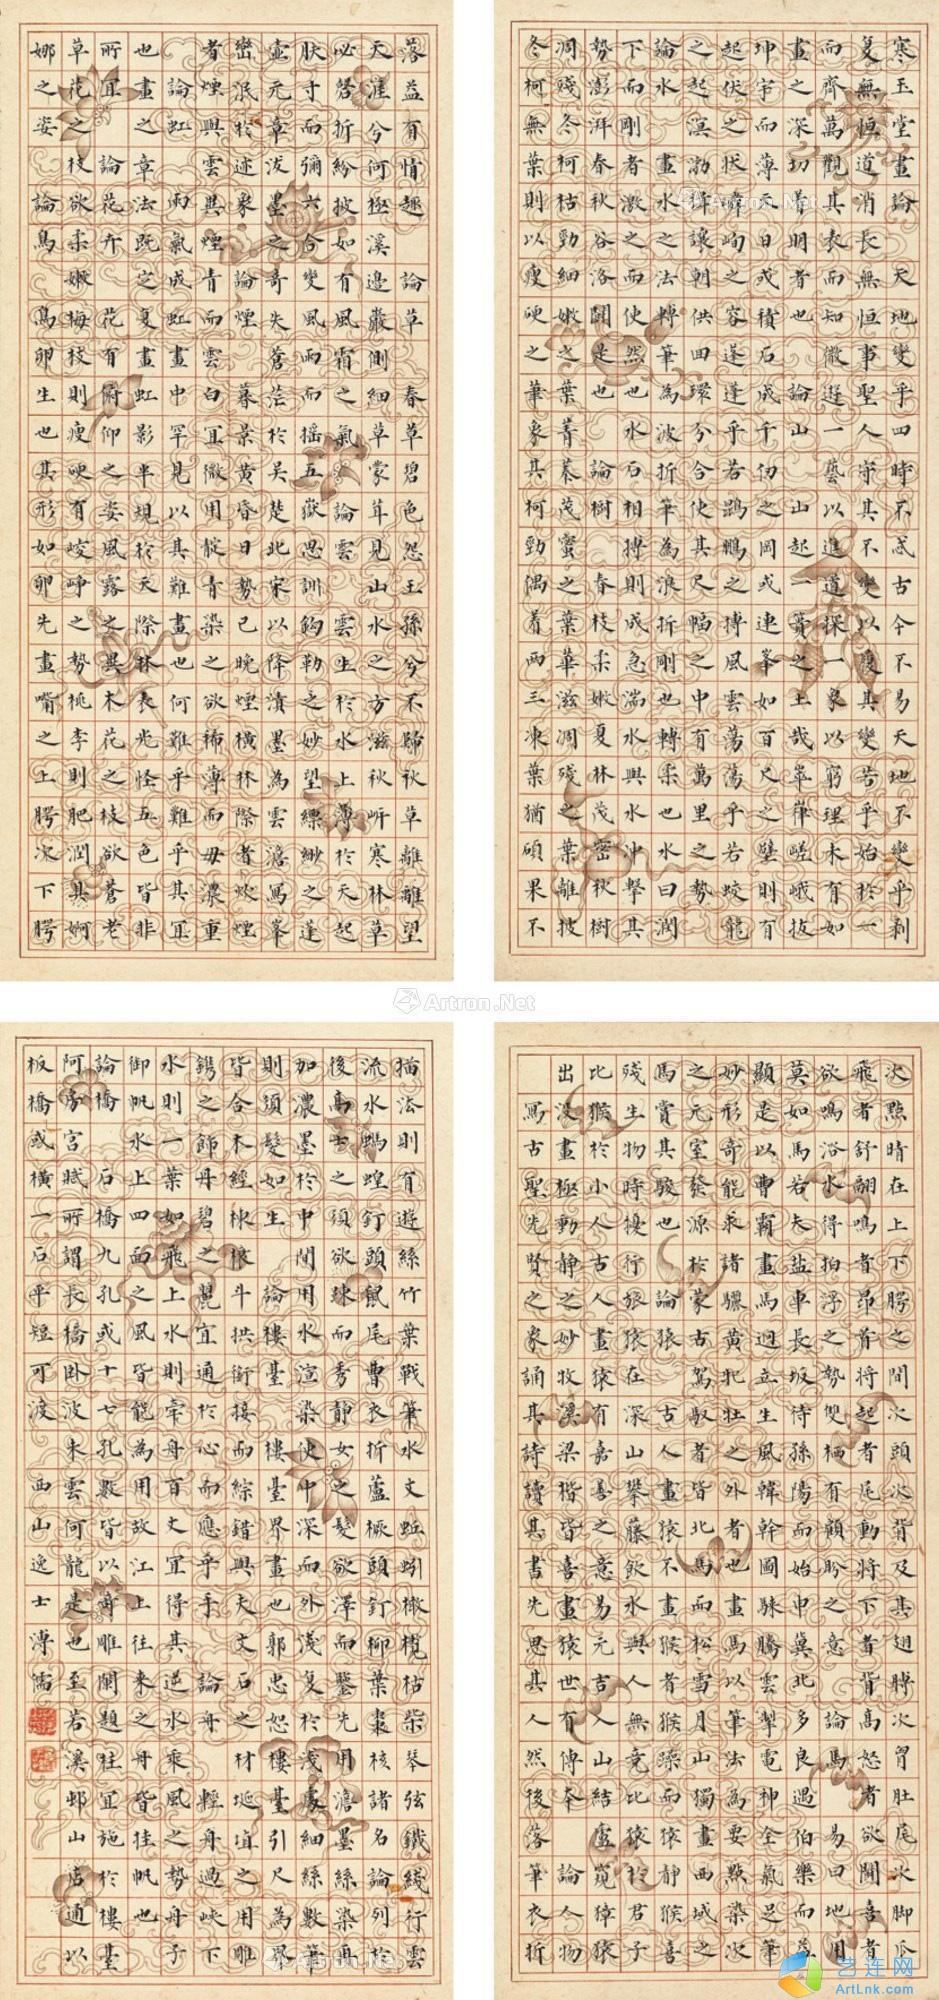 寒玉堂畫論　天地變乎四時不忒古今不易天地不變乎剥
复無恒道消長無恒事聖人守其不變以應其變若乎始於一
而齊萬觀其表而知微遊一藝以進道探一象以窮理未有如
畫之深切著明者也　論山　山起一簣之土哉崒嵂嵯峨拔
坤宇而薄天日或積石成千仞之岡或連峯如百尺之壁則有
起伏之狀嶙峋之容蓬蓬乎若鵾鵬之摶風雲蕩蕩乎若蛟龍
之起溟渤揖讓朝供回環分合使其尺幅之中有萬里之勢
論水　畫水之法轉筆為波折筆為浪折剛也轉柔也水曰潤
下而剛者激之而使然也水石相搏則成急湍水與水沖擊其
勢澎湃春秋谷洛鬭是也　論樹　春枝柔嫩夏林茂密秋樹
凋殘冬柯枯勁細嫩之葉菁蓁茂蜜之葉華滋凋殘之葉離披
冬柯無葉則以瘦硬之筆象其柯勁偶着兩三凍葉猶碩果不
落益有情趣　論草　春草碧色怨王孫兮不歸秋草離離望
天涯兮何極溪邊叢側細草蒙茸見山水之方滋秋岍寒林草
必磬折紛披如有風霜之氣　論雲　雲生於水上薄於天起
膚寸而彌六合變風雨而搖五嶽思訓鉤勒之妙望縹緲之蓬
壺元章潑墨之奇失蒼茫於吳楚此宋以降漬墨為雲澹寫峯
巒泯於迹象　論煙　暮景黃昏日勢已晚煙橫林際者炊煙
者煙與雲異煙青而雲白宜微用靛青染之欲稀薄而毋濃重
論虹　雨氣成虹畫中罕見以其難畫也何難乎難乎其宜
也畫之章法既定夏畫虹影半規於天際林表光怪五色皆非
所宜　論花卉　花有俯仰之姿風露之異木花之枝欲蒼老
草花之枝欲柔嫩梅枝則瘦硬有崚崢之勢桃李則肥潤具婀
娜之姿　論鳥　鳥卵生也其形如卵先畫嘴之上腭次下腭
次點睛在上下腭之間次頭次背及其翅膊次胷肚尾次脚爪
飛者舒翮鳴者昂首將起者尾動將下者背高怒者欲鬬喜者
欲鳴浴水得拍浮之勢雙栖有顧盼之意　論馬　易曰地用
莫如馬若夫盐車長坂待孫陽而始申冀北多良遇伯樂而益
顯是以曹霸畫馬迥立生風韓幹圖駷騰雲掣電神全氣足筆
妙形奇能求諸驪黃牝牡之外者也畫馬以筆法為要點染次
之元室發源於蒙古駕馭者皆北馬而松雪月山獨畫西域之
馬賞其駿也　論猿　古人畫猿不畫猴者猴躁而猿靜猴喜
殘生物時擾行旅猿在深山攀藤飲水與人無競比猿於君子
比猴於小人古人畫猿有嘉善之意易元吉入山結廬窺獐猿
出没畫極動静之妙牧溪梁楷皆喜畫猿世有傳本　論人物
寫古聖先賢之象誦其詩讀其書先思其人然後落筆衣折
描法則有遊絲竹葉戰筆水文蚯蚓橄欖枯柴琴弦鐵綫行雲
流水螞蝗釘頭鼠尾曹衣折蘆橛頭釘柳葉棗核諸名論列於
後高士之須欲疎而秀静女之髮欲澤而鬒先用澹墨絲染再
加濃墨於中間用水宣染使中深而外淺复於淺處細絲數筆
則須髮如生　論樓臺　樓臺界畫也郭忠恕樓臺引尺為界
皆合木經梂榱斗拱銜接而綜錯與夫文石之材埏埴之用雕
鐫之飾丹碧之麗宜通於心而應乎手　論舟　輕舟過峽下
水則一葉如飛上水則牽舟百丈宜得其逆水乘風之勢舟子
御帆水上四面之風皆能為用故江上往来之舟皆挂帆也
論橋　石橋九孔或十七孔數皆以奇雕闌題柱宜施於樓臺
阿房宮賦所謂長橋卧波未雲何龍是也至若溪邨山店通以
板橋或橫一石平短可渡　西山逸士溥儒
Artron.Net
艺连网
ArtLnk.com